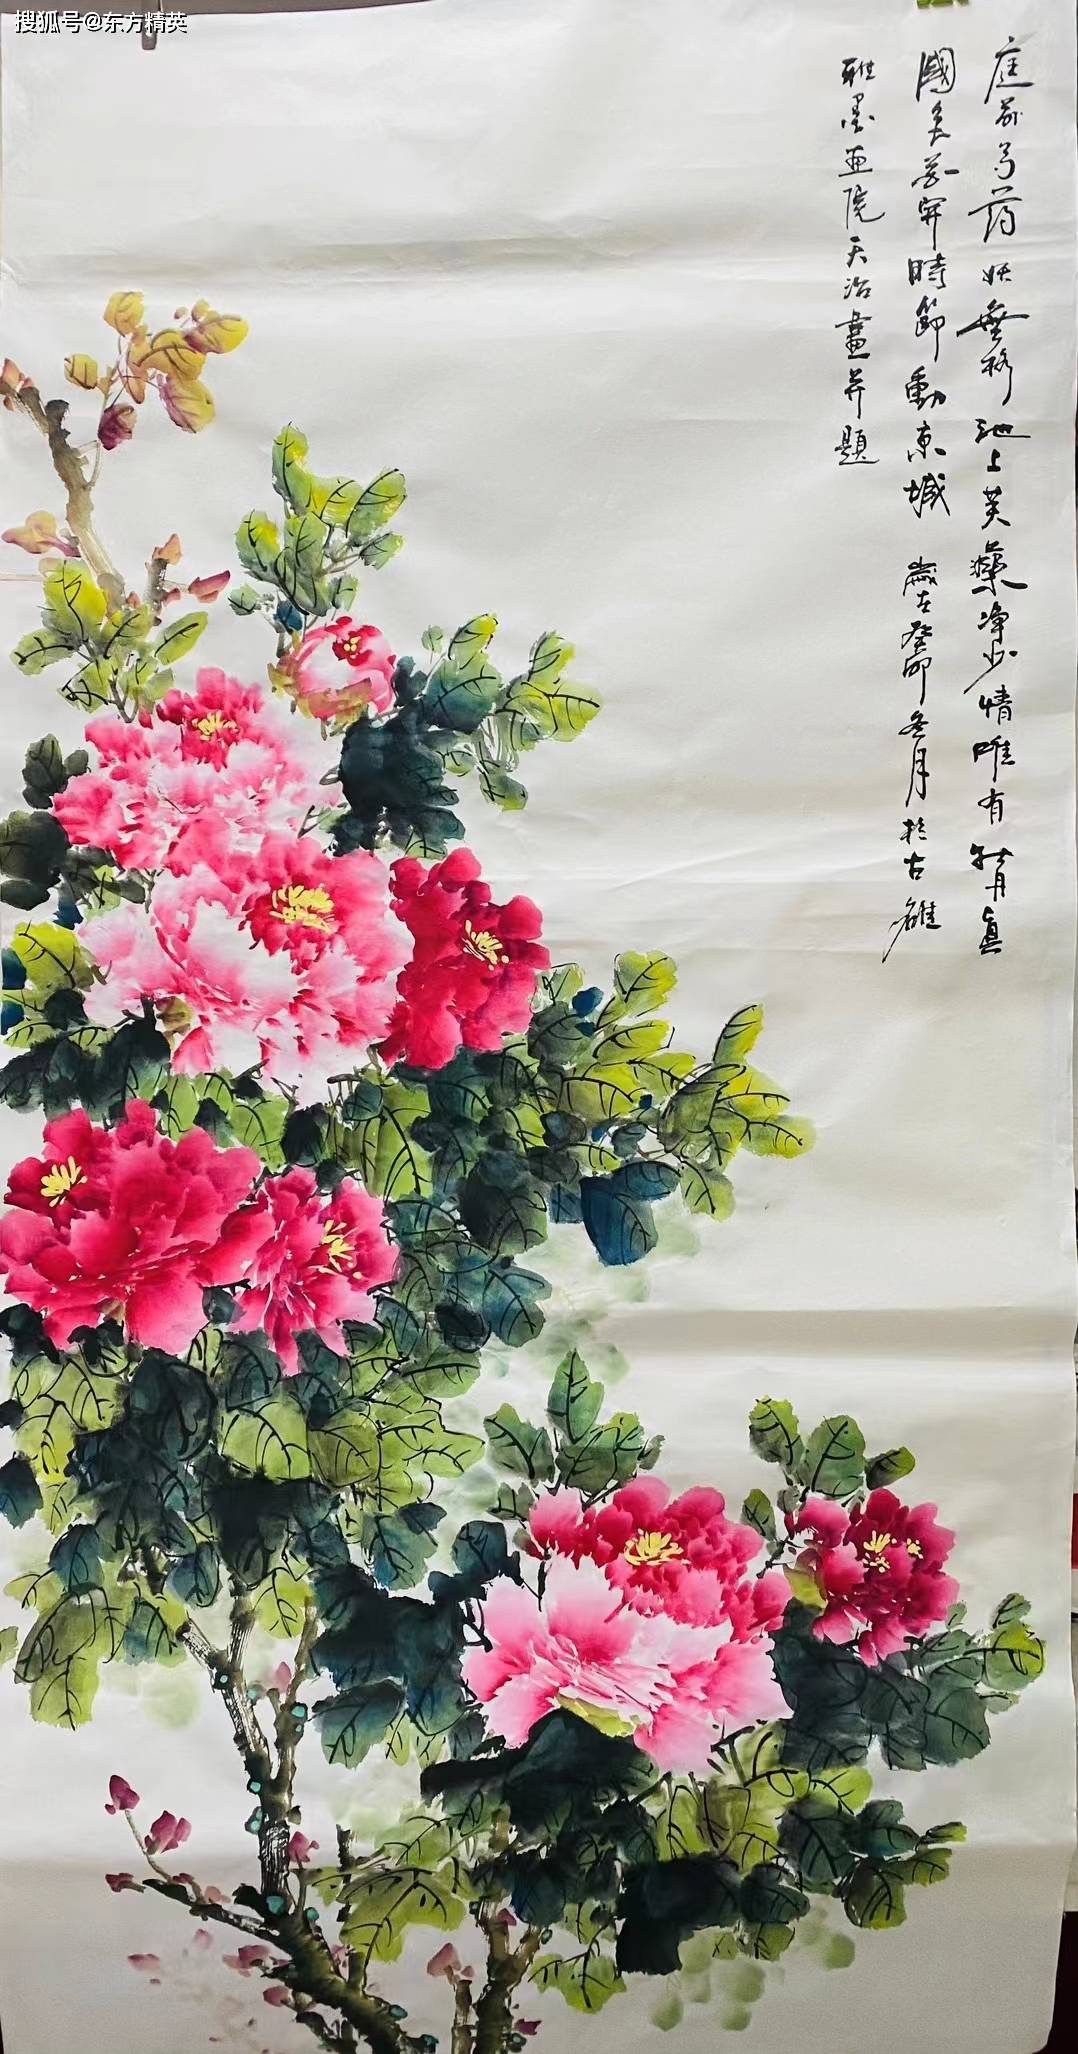 搜狐号@东方精英
庭前芍药妖無格池上芙蕖净少情唯有牡丹真
國色花開時節動京城 歲在癸卯冬月於古雒
雅墨画院天治畫并題